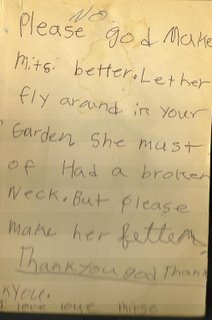 NO.
Please god Make
Mitsi better. Let her
fly around in your
Garden She must
of Had a broken
Neck. But please
make her better
Thankyou god Thank
kYou.
I love love